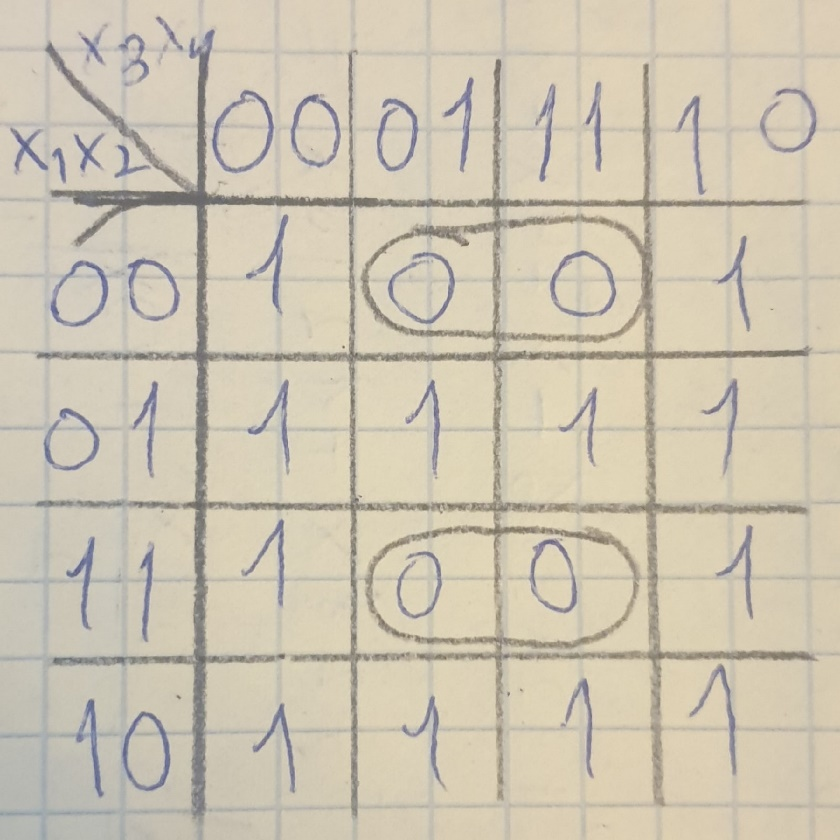 x₃x₄
x₁x₂ 00 01 11 10
00 1 0 0 1
01 1 1 1 1
11 1 0 0 1
10 1 1 1 1